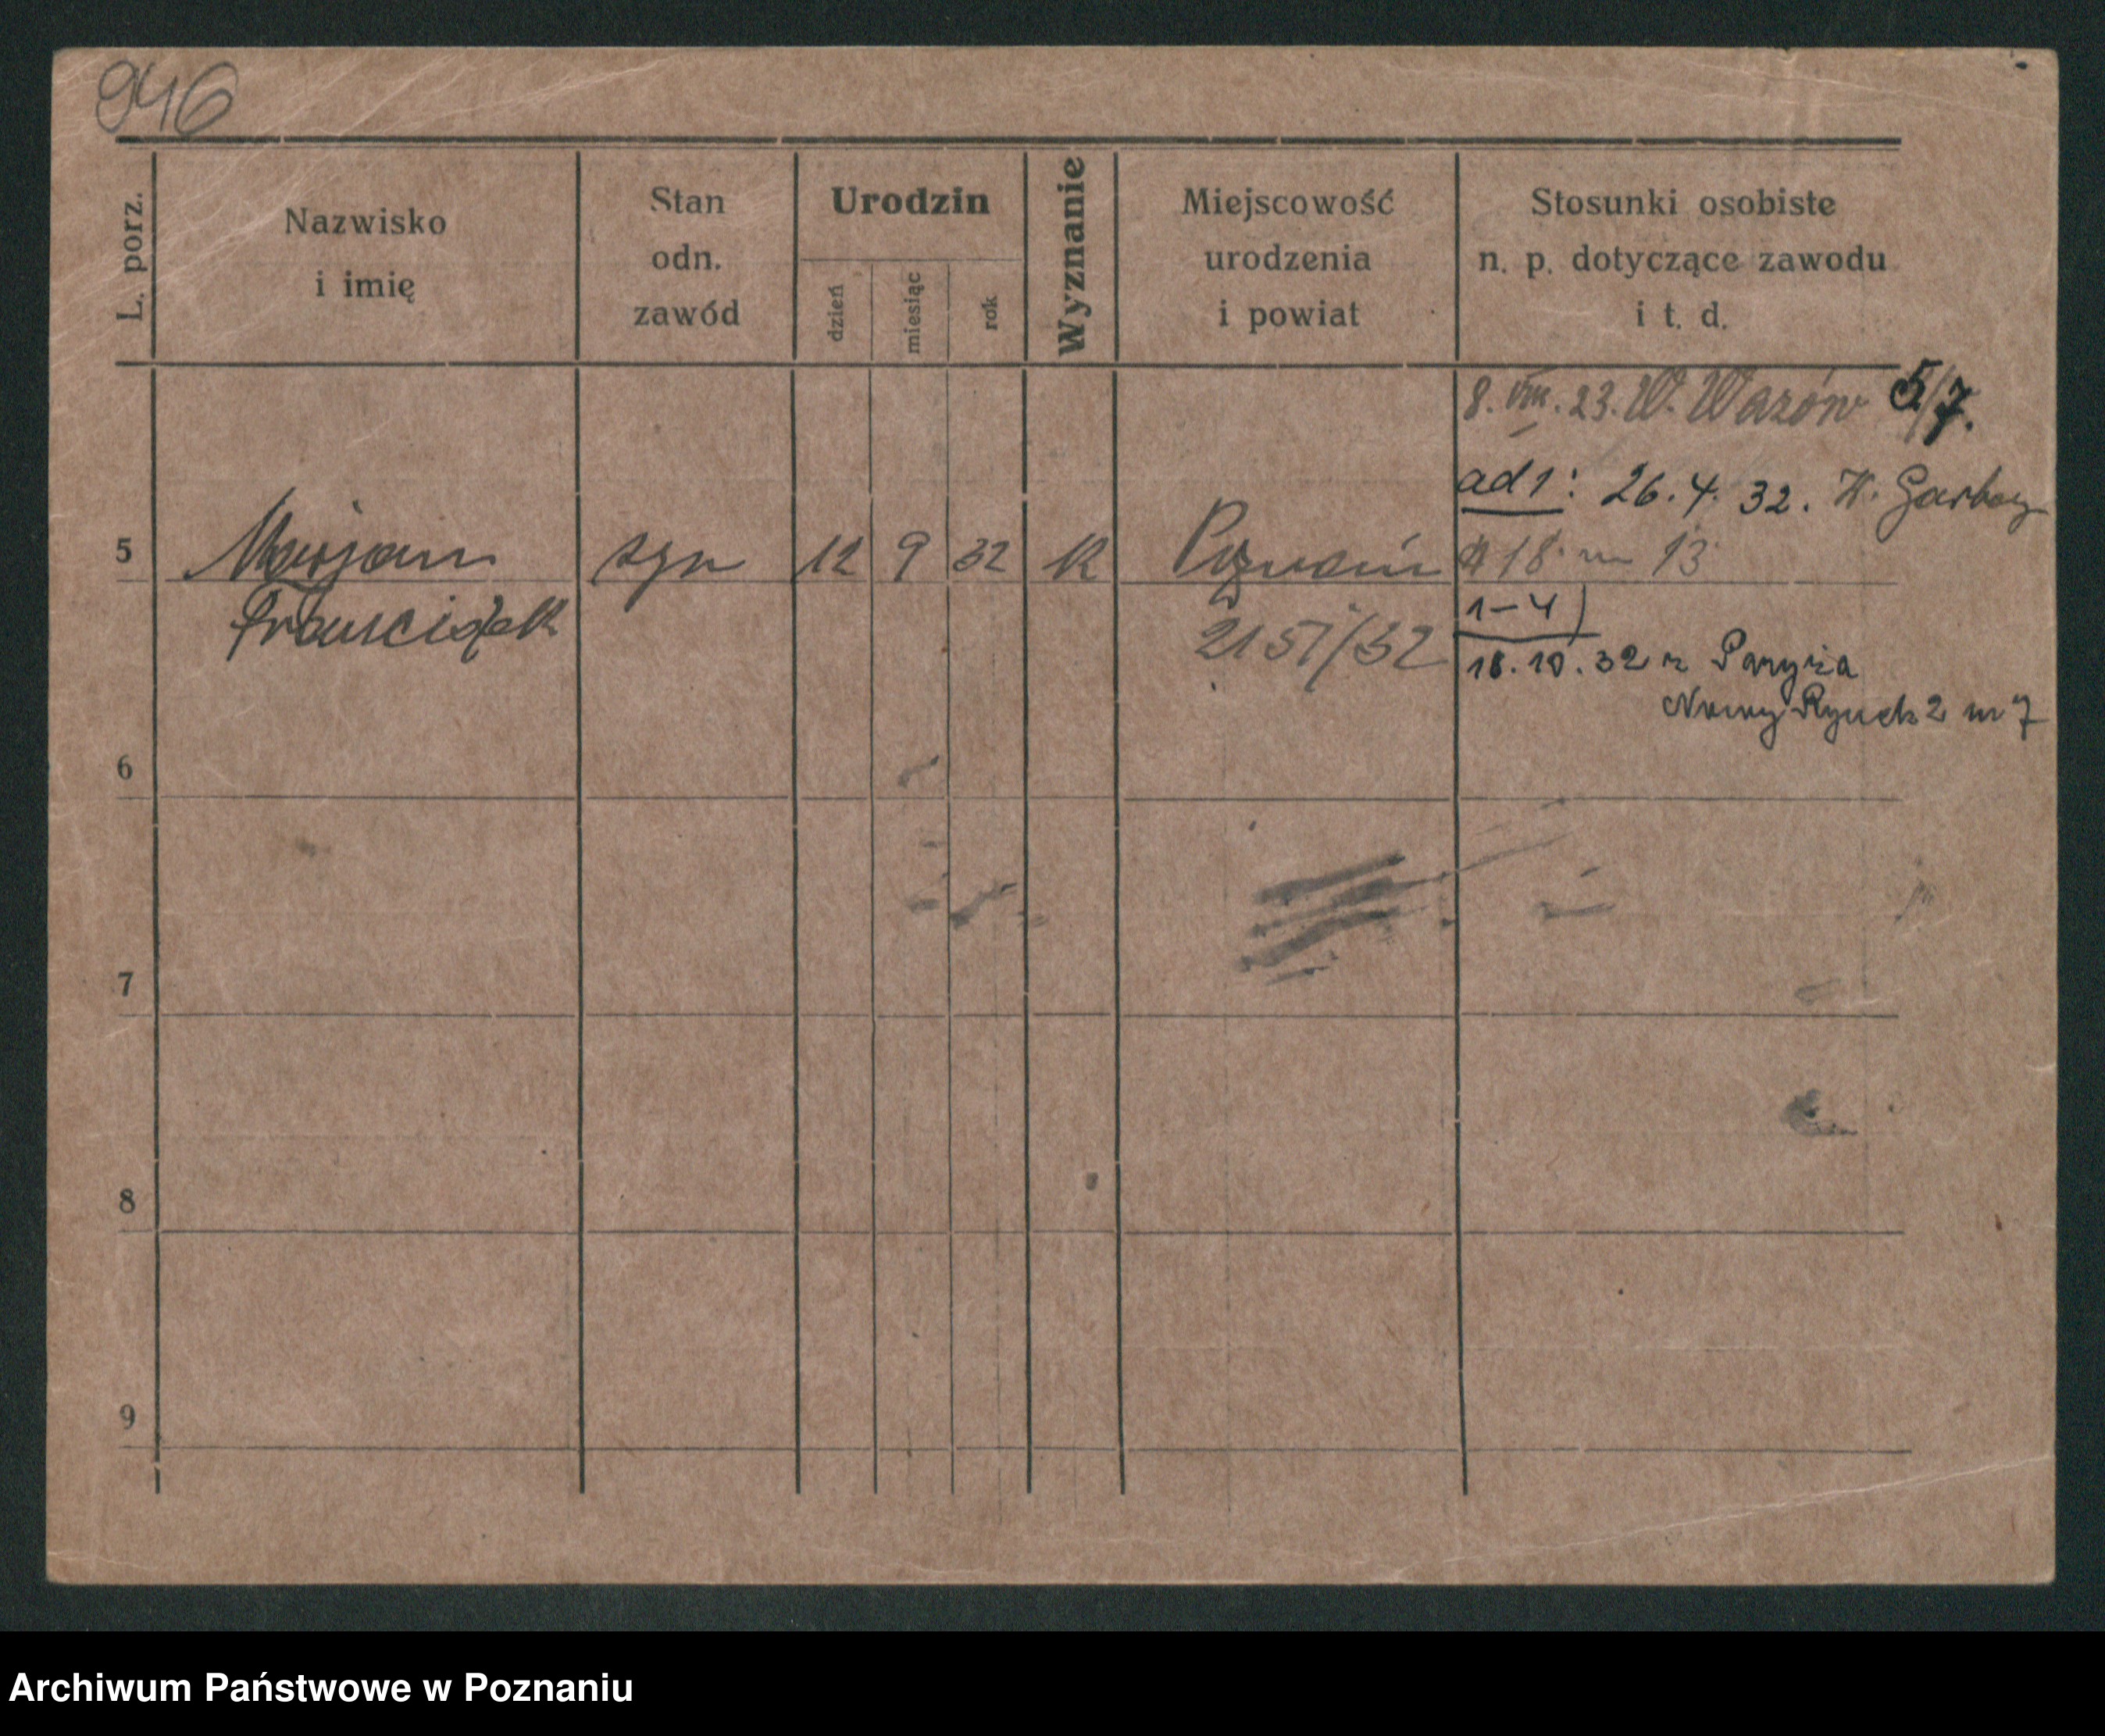 946
L. porz.
Nazwisko
i imię
Stan
odn.
zawód
Urodzin
dzień
miesiąc
rok
Wyznanie
Miejscowość
urodzenia
i powiat
Stosunki osobiste
n. p. dotyczące zawodu
i t. d.
8. VIII. 23. W. Wazów 5/7.
ad 1: 26. 4. 32. W. Garbary
18 m 13
5 Marjan syn 12 9 32 k Poznań
Franciszek 2157/32
1-4)
18. 10. 32 z Paryża
Nowy Rynek 2 m 7
6
7
8
9
Archiwum Państwowe w Poznaniu